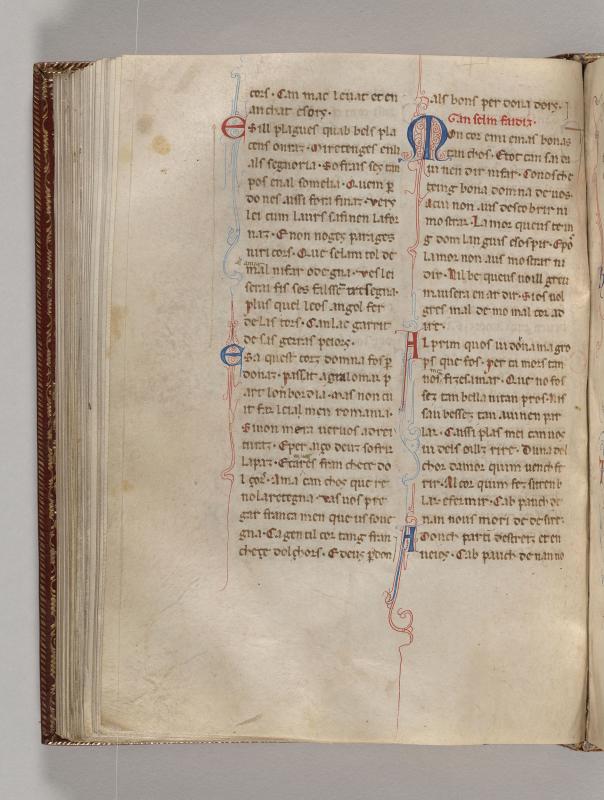 cors · Can mae leuar et en
an chat esors ·
Sill plagues quab bels pla
cens onraz · Mi retenges enl
als segnoria · Sofrais sez tan
pos enal somelia · Quem p̄
do nes aissi fora finaz · Vers
lei cum laurs safinen la for
naz · E non noges parages
niricors · Que selam tol de
mal nifar odegna · Ves lei
serai fis ses falsse tresegna
plus quel leos an gol fer
de las tors · Can lac garrit
de sas geiras peiors ·
Esa quest corz domna fos p̄
donaz · passar agralomar p̄
art lonbordia · Mas non cu
it far leial men romania ·
Si uon mera ueruos adrei
turaz · Eper aiço deuz sofrir
lapaz · Ecares fran cheze do
l cors · Ama can chos que re
nolaretegna · Vas uos pre
gar franca men que us soue
gna · Ca gen til cor tang fran
cheze dolchors · E deus p̄don
als bons per dona dors ·
Gan selm faidiz ·
Mon cor emi emas bonas
can chos · Etot can sai en
ui nen dir nifar · Conosche
teing bona domna de uos ·
Acui non aus descobrir ni
mostrar · Lamor queus tein
g dom lan guis esospir · Epo
lamor non aus mostrar ni
dir · Nil be queus uoill greu
mausera en ar dir · Si os uol
gres mal demo mal cor ad
ire ·
Al prim quos ui dona magro
ps que fos · per ta mors tan
nos fezes amar · Que no fos
sez tan bella nitan pros · Ni
sau bessez tan auinen par
lar · Caissi plas mei can uos
ui dels oillz rire · Duna dol
chor damor quim uench fe
rir · Al cor quim fez si trenb
lar efermir · Cab pauch de
nan nous mori de desire ·
Adonch parti destreiz et en
ueios · Cab pauch de nan no